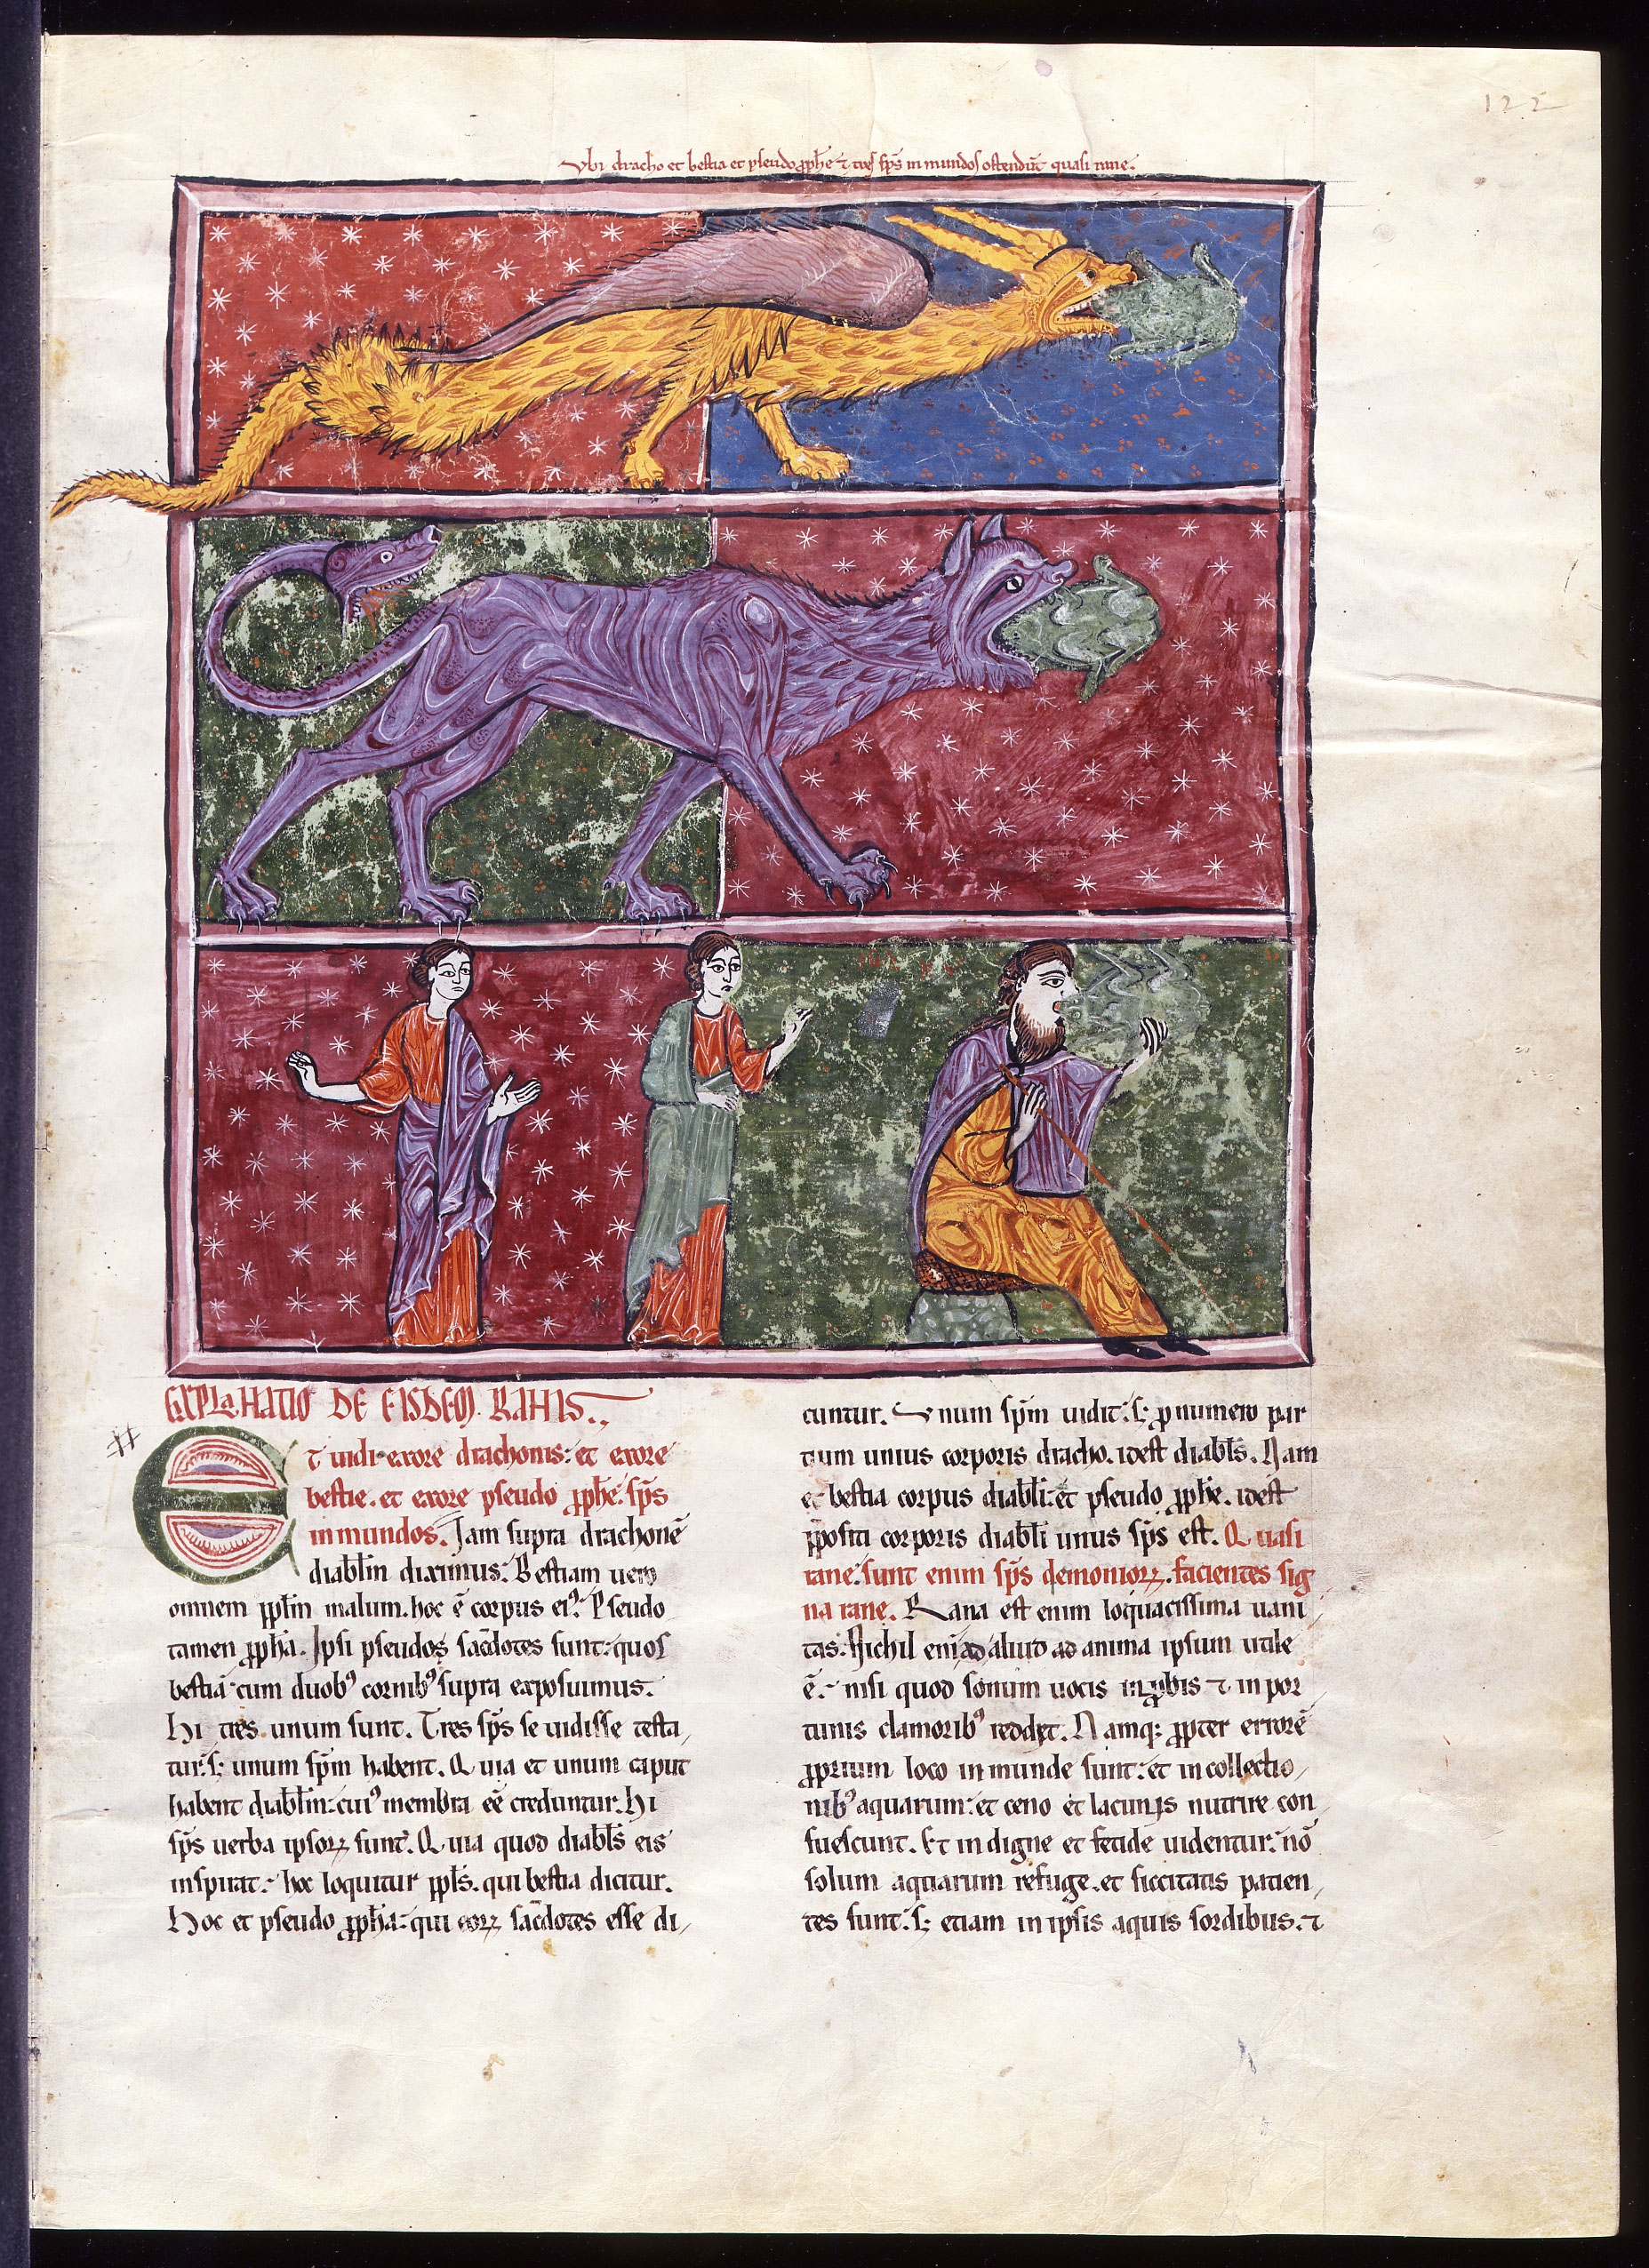 122
Vbi dracho et bestia et pseudo ꝓph̄e ⁊ tres sp̄s in mundos ostendūt quasi rane.
EXPLANATIO DE EISDEM RANIS.
ET uidi exore drachonis: et exore
bestie. et exore pseudo ꝓph̄e: sp̄s
inmundos. Jam supra drachonē
diabl̄m diximus: Bestiam uero
omnem ppl̄m malum. hoc ē corpus eiꝰ. Pseudo
tamen ꝓph̄a. Ipsi pseudo sac̄dotes sunt: quos
bestiā cum duobꝰ cornibꝰ supra exposuimus.
Hi tres unum sunt. Tres sp̄s se uidisse testa,
tur: s; unum sp̄m habent. Quia et unum caput
habent diabl̄m: cuiꝰ membra eē creduntur. Hi
sp̄s uerba ipsoꝝ sunt. Quia quod diabl̄s eis
inspirat: hoc loquitur ppl̄s. qui bestia dicitur.
Hoc et pseudo ꝓph̄a: qui eoꝝ sac̄dotes esse di,
cuntur. Vnum sp̄m uidit: s; ꝓ numero par
tium unius corporis dracho. idest diabl̄s. Nam
et bestia corpus diabl̄i: et pseudo ꝓph̄e. idest
p̄positi corporis diabl̄i unus sp̄s est. Quasi
rane: sunt enim sp̄s demonioꝝ. facientes sig
na rane. Rana est enim loquacissima uani,
tas: Nichil eni ad aliud ad anima ipsum utile
ē: nisi quod sonum uocis inꝓbis ⁊ inpor,
tunis clamoribꝰ reddet. Namq; ꝓpter errorē
ꝓprium loco inmunde sunt: et incollectio,
nibꝰ aquarum: et ceno et lacunis nutrire con,
suescunt. Et indigne et fetide uidentur: nō
solum aquarum refuge. et siccitatis patien,
tes sunt: s; etiam in ipsis aquis sordibus. ⁊